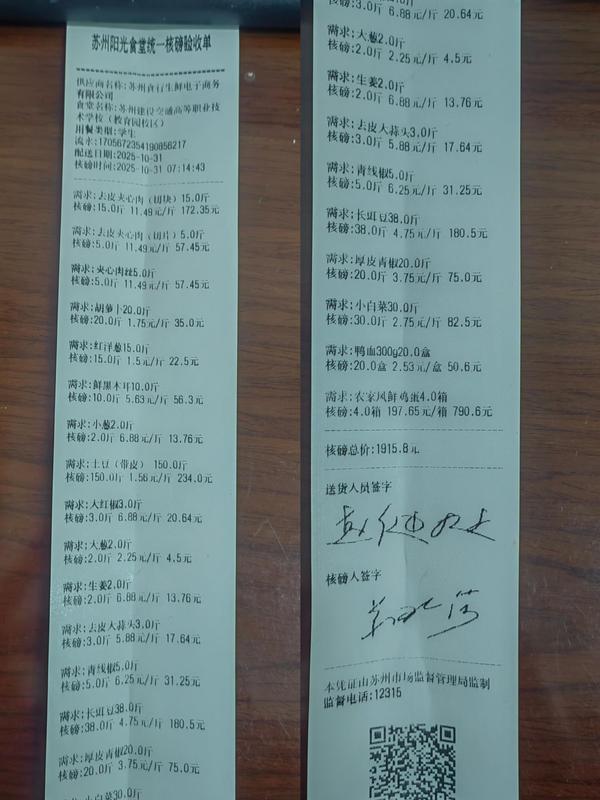 苏州阳光食堂统一核磅验收单
供应商名称:苏州食行生鲜电子商务
有限公司
食堂名称:苏州建设交通高等职业技
术学校(教育园校区)
用餐类型:学生
流水:1705672354190856217
配送日期:2025-10-31
核磅时间:2025-10-31 07:14:43
需求:去皮夹心肉(切块)15.0斤
核磅:15.0斤 11.49元/斤 172.35元
需求:去皮夹心肉(切片)5.0斤
核磅:5.0斤 11.49元/斤 57.45元
需求:夹心肉丝5.0斤
核磅:5.0斤 11.49元/斤 57.45元
需求:胡萝卜20.0斤
核磅:20.0斤 1.75元/斤 35.0元
需求:红洋葱15.0斤
核磅:15.0斤 1.5元/斤 22.5元
需求:鲜黑木耳10.0斤
核磅:10.0斤 5.63元/斤 56.3元
需求:小葱2.0斤
核磅:2.0斤 6.88元/斤 13.76元
需求:土豆(带皮) 150.0斤
核磅:150.0斤 1.56元/斤 234.0元
需求:大红椒3.0斤
核磅:3.0斤 6.88元/斤 20.64元
需求:大葱2.0斤
核磅:2.0斤 2.25元/斤 4.5元
需求:生姜2.0斤
核磅:2.0斤 6.88元/斤 13.76元
需求:去皮大蒜头3.0斤
核磅:3.0斤 5.88元/斤 17.64元
需求:青线椒5.0斤
核磅:5.0斤 6.25元/斤 31.25元
需求:长豇豆38.0斤
核磅:38.0斤 4.75元/斤 180.5元
需求:厚皮青椒20.0斤
核磅:20.0斤 3.75元/斤 75.0元
需求:小白菜30.0斤
核磅:3.0斤 6.88元/斤 20.64元
需求:大葱2.0斤
核磅:2.0斤 2.25元/斤 4.5元
需求:生姜2.0斤
核磅:2.0斤 6.88元/斤 13.76元
需求:去皮大蒜头3.0斤
核磅:3.0斤 5.88元/斤 17.64元
需求:青线椒5.0斤
核磅:5.0斤 6.25元/斤 31.25元
需求:长豇豆38.0斤
核磅:38.0斤 4.75元/斤 180.5元
需求:厚皮青椒20.0斤
核磅:20.0斤 3.75元/斤 75.0元
需求:小白菜30.0斤
核磅:30.0斤 2.75元/斤 82.5元
需求:鸭血300g20.0盒
核磅:20.0盒 2.53元/盒 50.6元
需求:农家风鲜鸡蛋4.0箱
核磅:4.0箱 197.65元/箱 790.6元
核磅总价:1915.8元
送货人员签字
核磅人签字
本凭证由苏州市场监督管理局监制
监督电话:12315